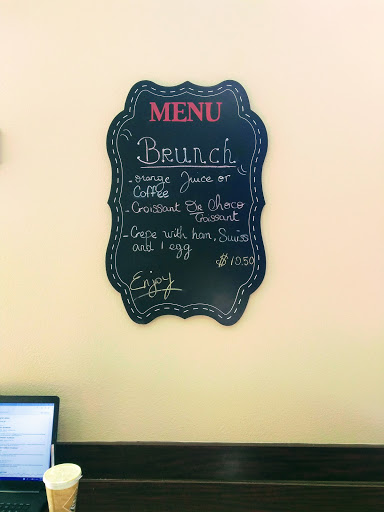 MENU
Brunch
- orange Juice or
Coffee
- Croissant Or Choco
Croissant
- Crepe with ham, Swiss
and 1 egg
$10.50
Enjoy